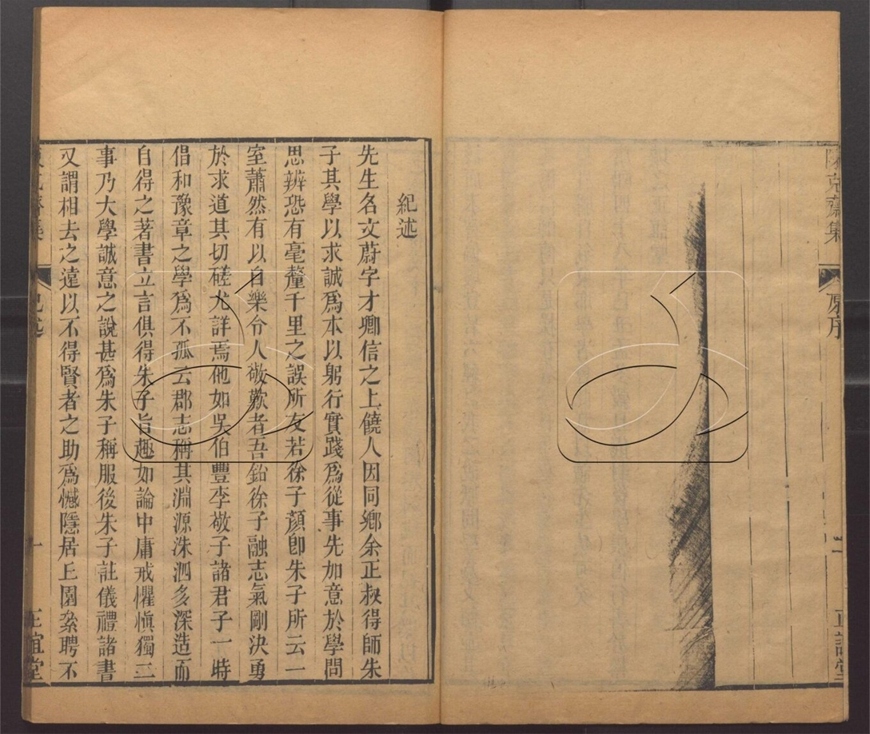 克齋集
原序
正誼堂
紀述
先生名文蔚字才卿信之上饒人因同鄉余正叔得師朱
子其學以求誠爲本以躬行實踐爲從事先加意於學問
思辨恐有毫釐千里之誤所友若徐子顏卽朱子所云一
室蕭然有以自樂令人敬歎者吾鉛徐子融志氣剛決勇
於求道其切磋尤詳焉他如吳伯豐李敬子諸君子一時
倡和豫章之學爲不孤云郡志稱其淵源洙泗多深造而
自得之著書立言俱得朱子旨趣如論中庸戒懼愼獨二
事乃大學誠意之說甚爲朱子稱服後朱子註儀禮諸書
又謂相去之遠以不得賢者之助爲憾隱居丘園叅聘不
克齋集
紀述
一
正誼堂